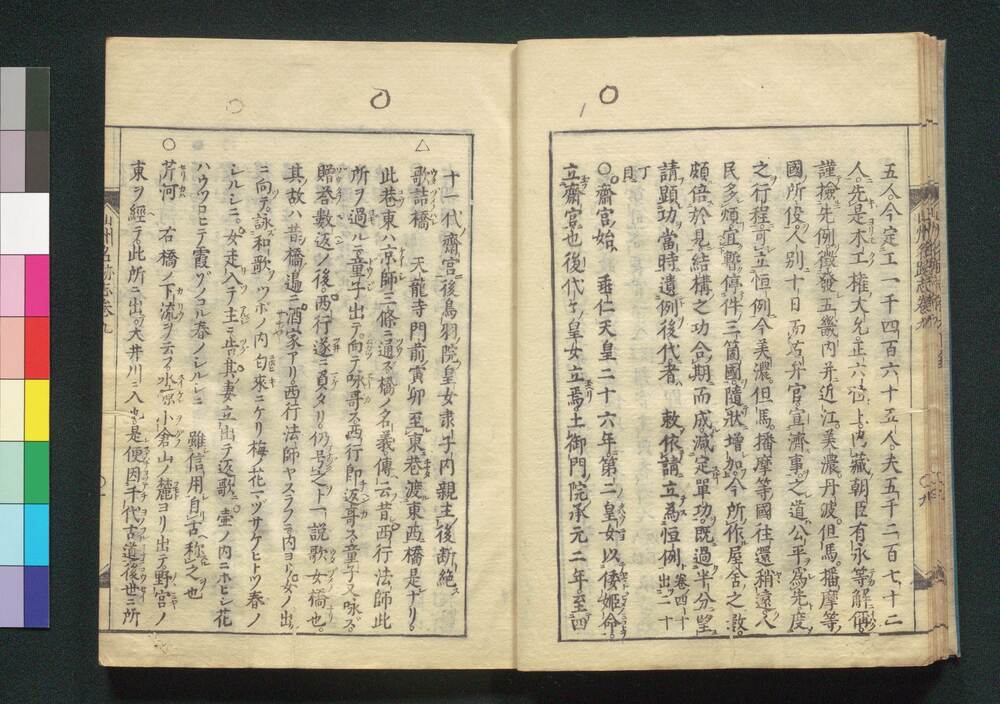 五人今定工一千四百六十五人夫五千二百七十二
人先是木工権大允正六位上内藏朝臣有永等解偁
謹撿先例徴發五畿内并近江美濃丹波但馬播摩等
國所役人別十日而右弁官宣濟事之道公平為先度
之行程可立恒例今美濃但馬播摩等國往還稍遠人
民多煩宜暫停件三箇國隨狀増加今所作屋舍之数
頗倍於見結構之功合期而成減定單功既過半分望
請顕功當時遺例後代者 敕依請立為恒例 出二十卷四十
丁貝
○齋宮始 垂仁天皇二十六年第二皇女以倭姫命
立齋宮也後代々皇女立焉土御門院承元二年至四
十一代齋宮後鳥羽院皇女隷子内親王後断絶
△歌詰橋 天龍寺門前寅卯至東巷渡東西橋是ナリ
此巷東ハ京師三條ニ通ス橋ノ名義傳云昔西行法師此
所ヲ過ルニ童子出テ向テ咏哥ス西行即返哥ス童子又咏ス
贈荅數返ノ後西行遂ニ負タリ仍号之ト一説歌女橋也
其故ハ昔橋邉ニ酒家アリ西行法師ヤスラフニ内ヨリ女ノ出
ニ向テ詠和歌ツボノ内匂來ニケリ梅ノ花マヅサケヒトツ春ノ
シルシニ女走入テ主ニ告其妻立出テ返歌壷ノ内ニホヒシ花
ハウツロヒテ霞ゾノコル春ノシルシニ 雖信用自古称之也
○芹河 右橋ノ下流ヲ云フ水源小倉山ノ麓ヨリ出テ野宮ノ
東ヲ經テ此所ニ出大井川ニ入也是便因千代古道後世ニ所
山州名跡志卷九